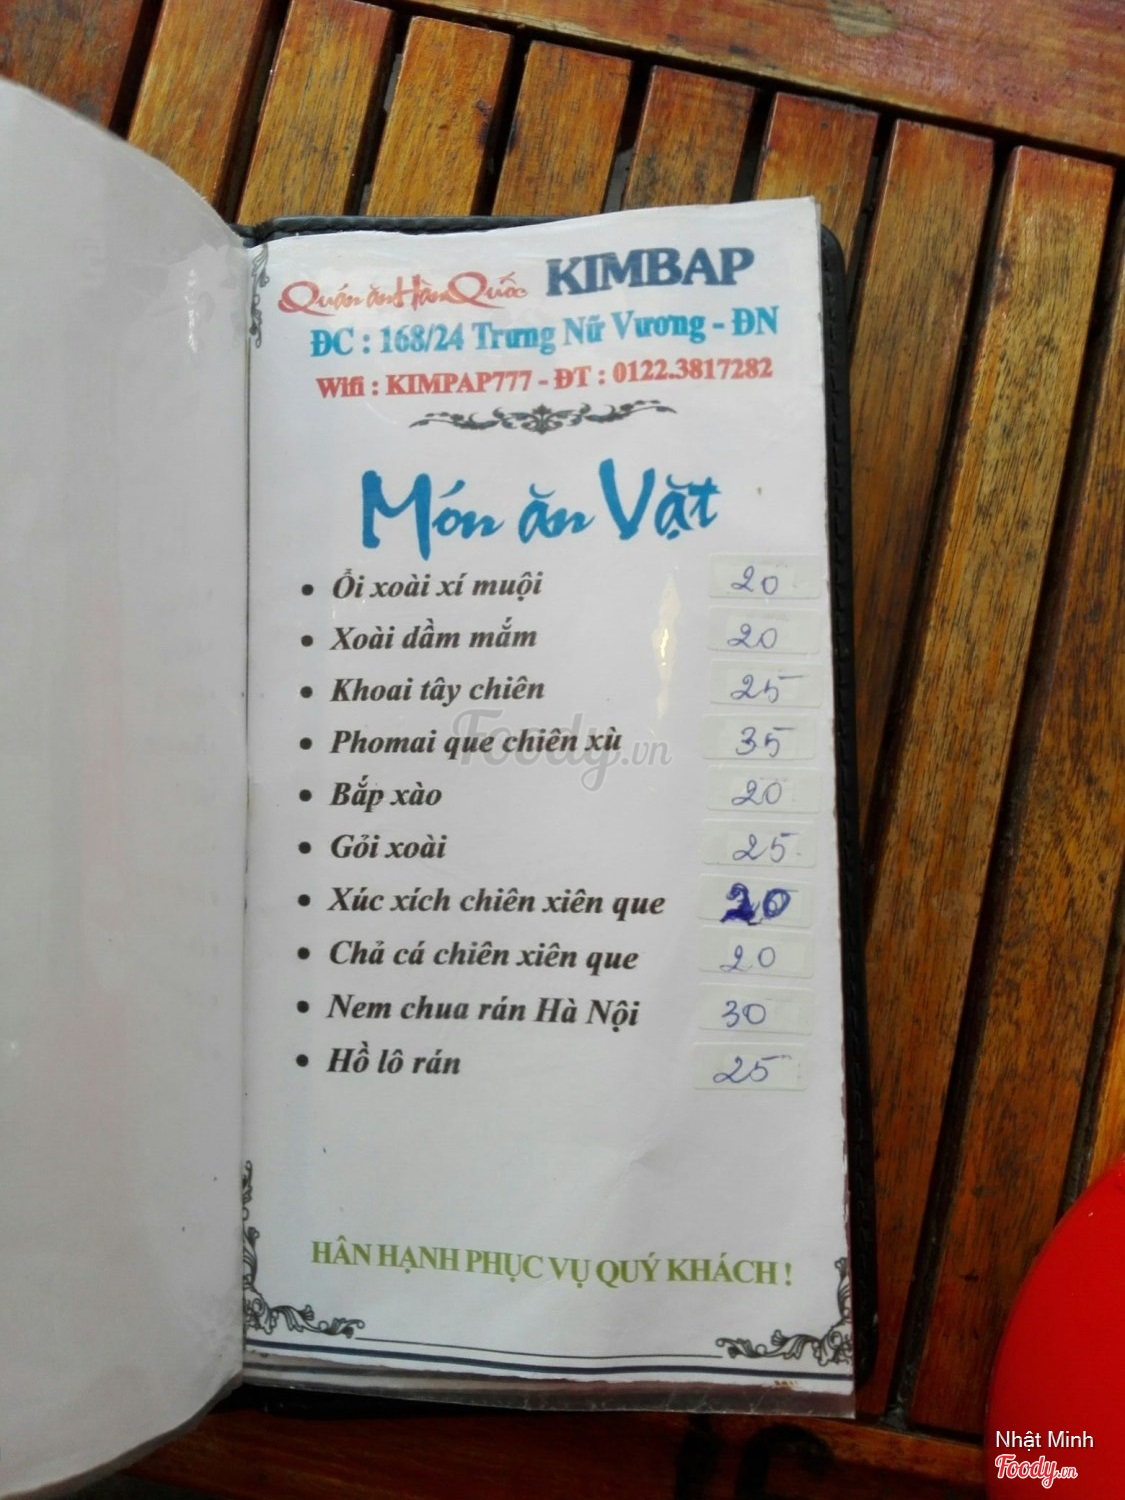 Quán ăn Hàn Quốc KIMBAP
ĐC : 168/24 Trưng Nữ Vương - ĐN
Wifi : KIMPAP777 - ĐT : 0122.3817282
Món ăn Vặt
• Ổi xoài xí muội 20
• Xoài dầm mắm 20
• Khoai tây chiên 25
• Phomai que chiên xù 35
• Bắp xào 20
• Gỏi xoài 25
• Xúc xích chiên xiên que 20
• Chả cá chiên xiên que 20
• Nem chua rán Hà Nội 30
• Hồ lô rán 25
HÂN HẠNH PHỤC VỤ QUÝ KHÁCH !
Foody.vn
Nhật Minh
Foody.vn